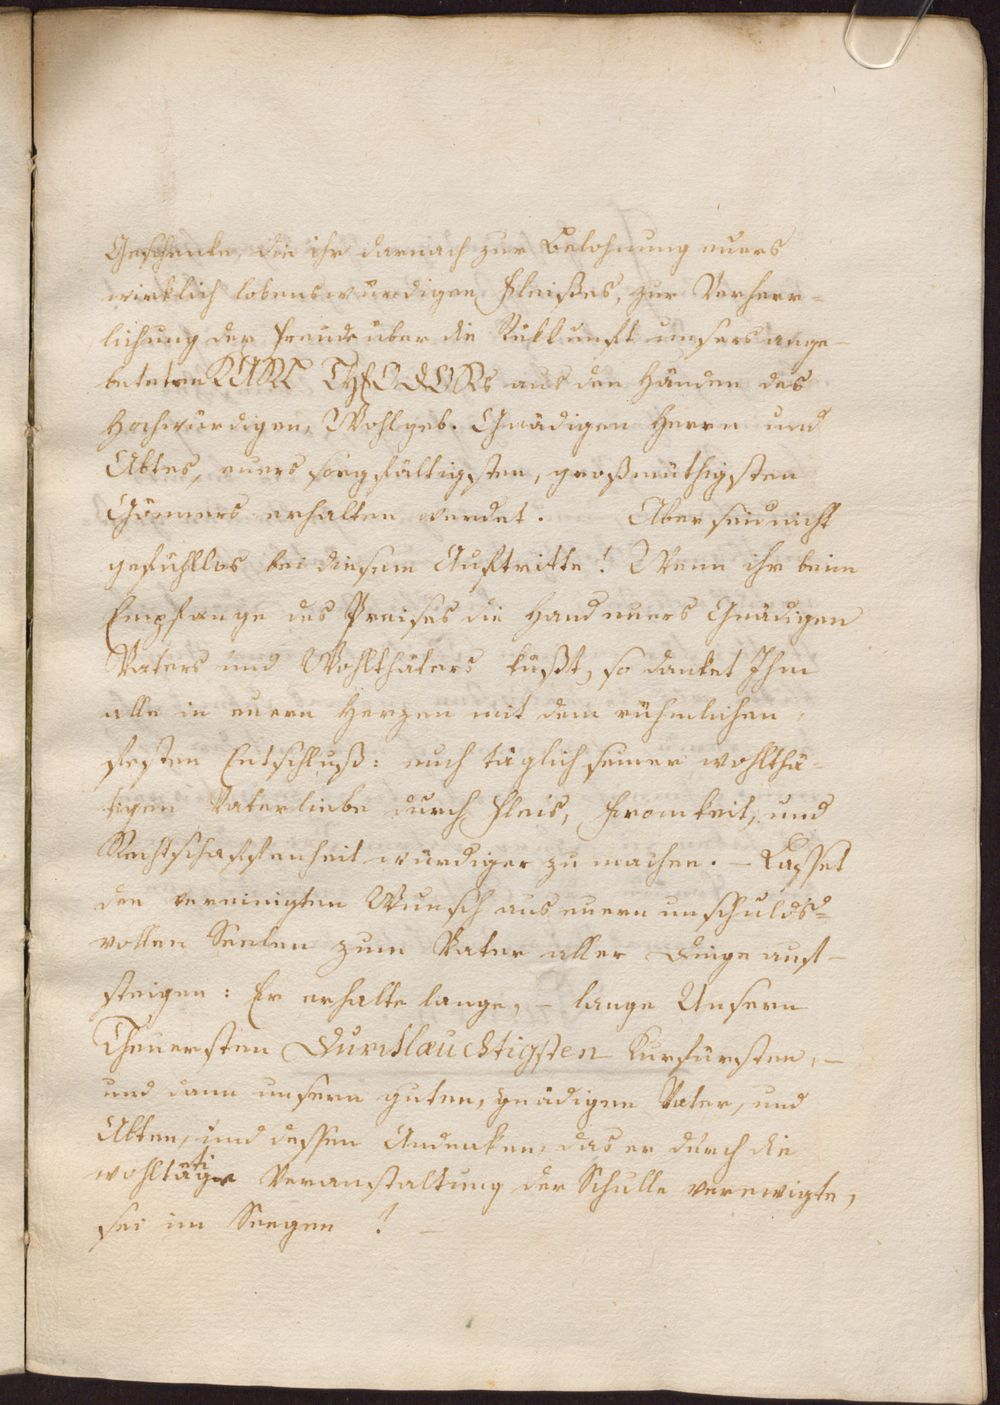 Geschenke, die ihr darnach zur Belohnung euers
wirklich lobenswürdigen Fleißes, zur Verherr=
lichung der Freude über die Rükkunft unsers ange-
beteten KARL THEODORs aus den Händen des
Hochwürdigen, Wohlgeb. Gnädigen Herrn und
Abtes, euers sorgfältigsten, großmüthigsten
Gönners erhalten werdet. Aber seid nicht
gefühllos bei diesem Auftritte! Wenn ihr beim
Empfange des Preises die Hand euers Gnädigen
Vaters und Wohlthäters küßt, so danket Ihm
alle in euern Herzen mit dem rühmlichen,
festen Entschluß: euch täglich seiner wohlthä-
tigen Vaterliebe durch Fleis, Fromkeit, und
Rechtschaffenheit würdiger zu machen. – Lasset
den vereinigten Wunsch aus euern unschulds=
vollen Seelen zum Vater aller Dinge auf-
steigen: Er erhalte lange, – lange Unsern
Theuersten Durchlauchtigsten Kurfürsten, –
und dann unsern guten, gnädigen Vater, und
Abten, und dessen Andenken, das er durch die
wohltätige Veranstaltung der Schulle verewigte,
sei im Seegen! –